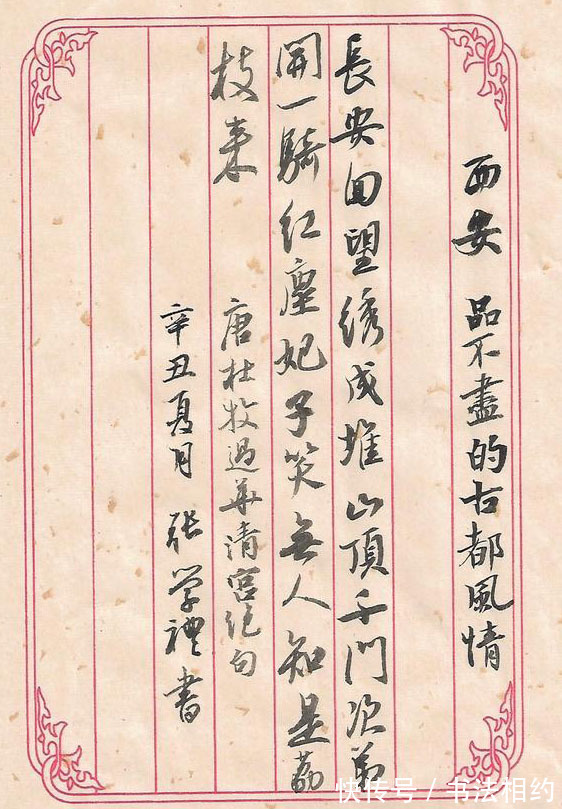 西安 品不盡的古都風情
長安回望绣成堆山頂千門次第
開一騎红塵妃子笑無人知是荔
枝来
唐杜牧過華清宫绝句
辛丑夏月 张学禮書
快传号 / 书法相约